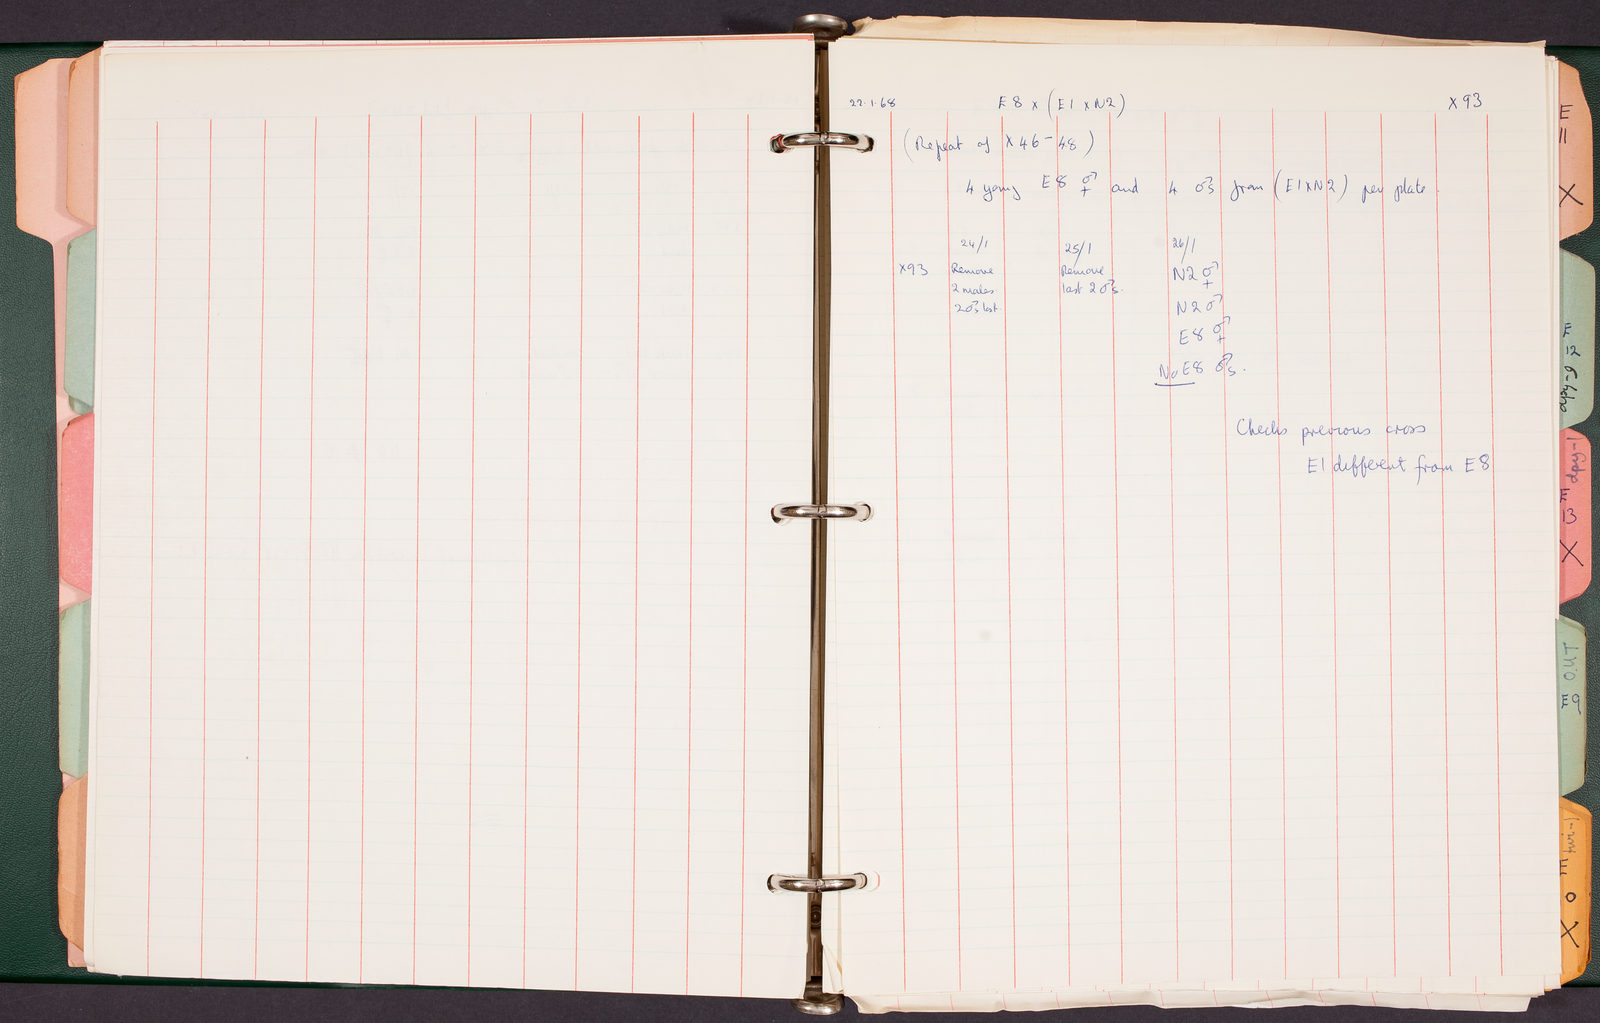 22.1.68 E8 x (E1 x N2) X93
(Repeat of X46-48)
4 young E8 ⚥ and 4 ♂s from (E1xN2) per plate
24/1 25/1 26/1
X93 Remove Remove N2 ⚥
2 males last 2 ♂s.
2♂s lost. N2 ♂
E8 ⚥
No E8 ♂s.
Checks previous cross
E1 different from E8
E
11
X
E
12
dpy-9
dpy-1
E
13
X
O.U.T
E9
E
0
X